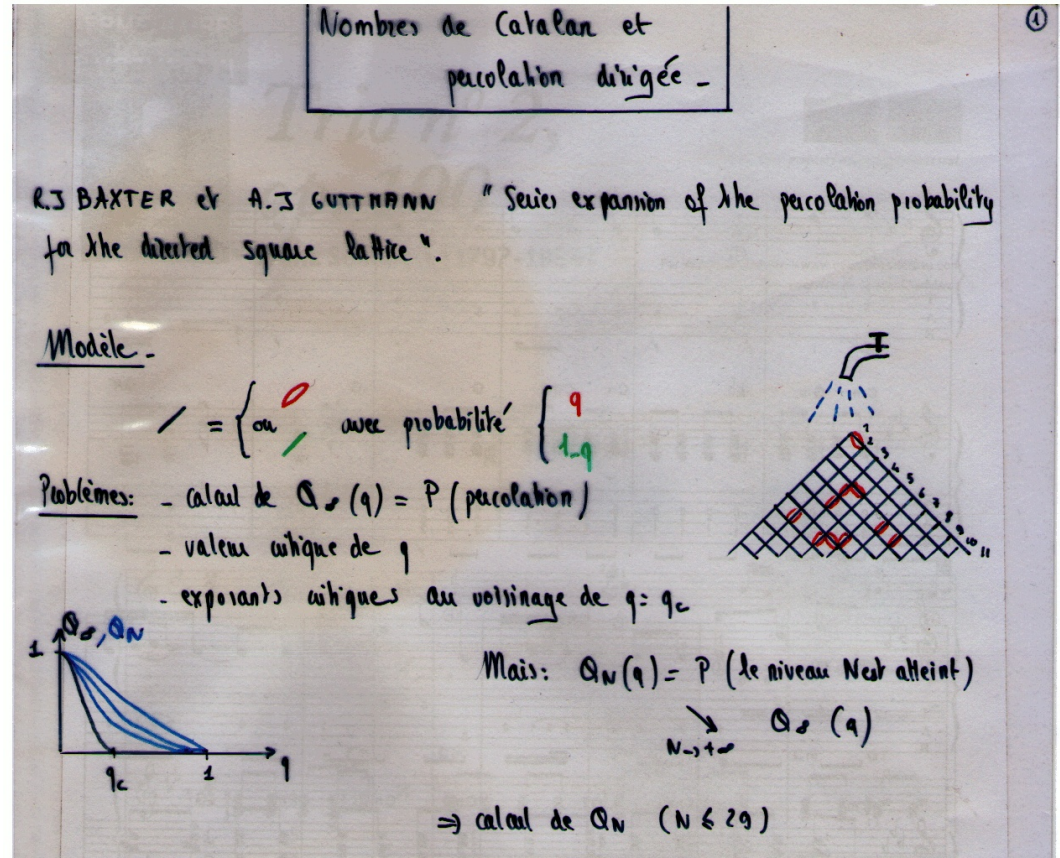 ①
Nombres de Catalan et
percolation dirigée -
R.J BAXTER et A.J GUTTMANN " Series expansion of the percolation probability
for the directed square lattice ".
Modèle -
/ = { ou avec probabilité { q
1-q
Problèmes: - calcul de Q∞(q) = P (percolation)
- valeur critique de q
- exposants critiques au voisinage de q = qc
1 2 3 4 5 6 7 8 9 10 11
Q∞, QN
1
qc 1 q
Mais: QN(q) = P (le niveau N est atteint)
↘ Q∞ (q)
N→+∞
⇒ calcul de QN (N ≤ 29)
Trio n° 2,